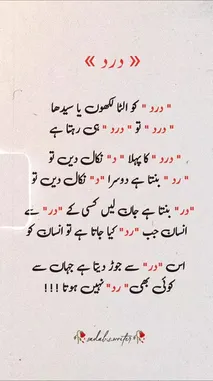 « درد »
" درد " کو الٹا لکھوں یا سیدھا
" درد " تو " درد " ہی رہتا ہے
" درد " کا پہلا "د" نکال دیں تو
" رد " بنتا ہے دوسرا "د" نکال دیں تو
"در" بنتا ہے جان لیں کسی کے "در" سے
انسان جب "رد" کیا جاتا ہے تو انسان کو
اس "در" سے جوڑ دیتا ہے جہاں سے
کوئی بھی "رد" نہیں ہوتا !!!